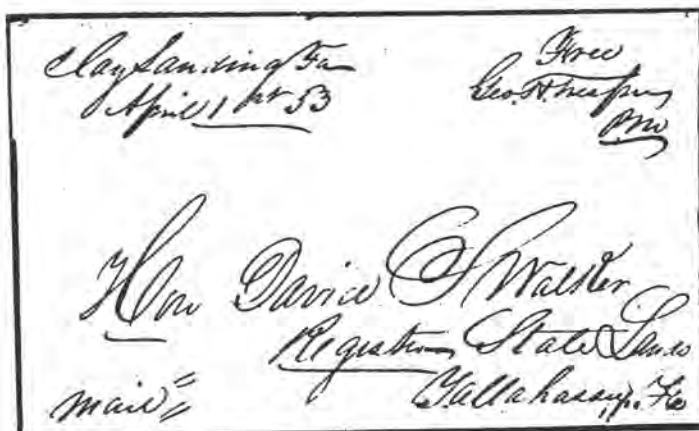 Clay Landing Fa
April 1st 53
Free
Geo. H.
PM
Hon David S Walker
Register State Lands
Tallahassee, Fa
mail